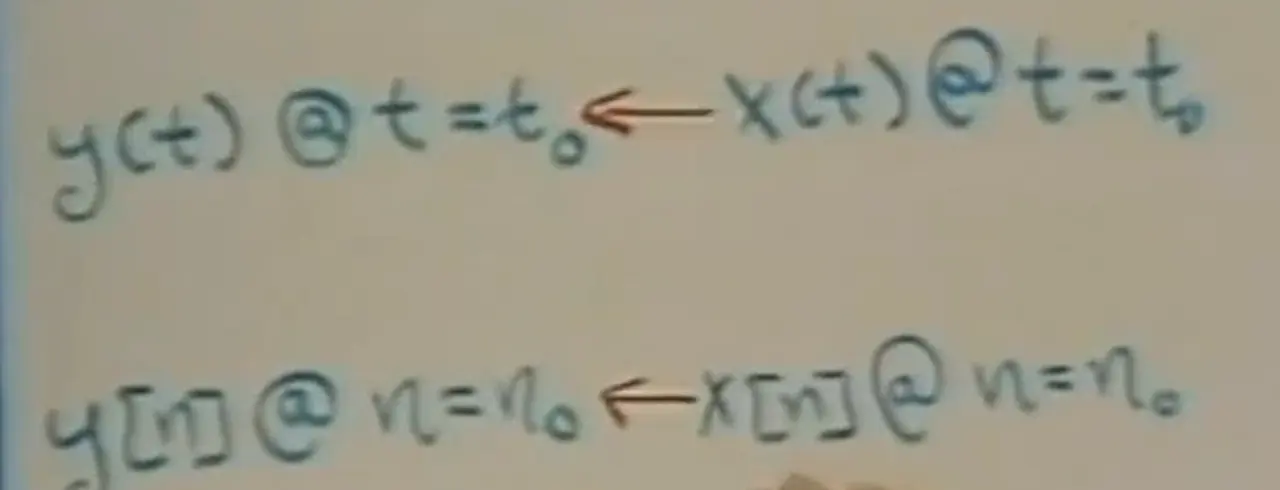 y(t) @ t = t₀ ← x(t) @ t = t₀
y[n] @ n = n₀ ← x[n] @ n = n₀